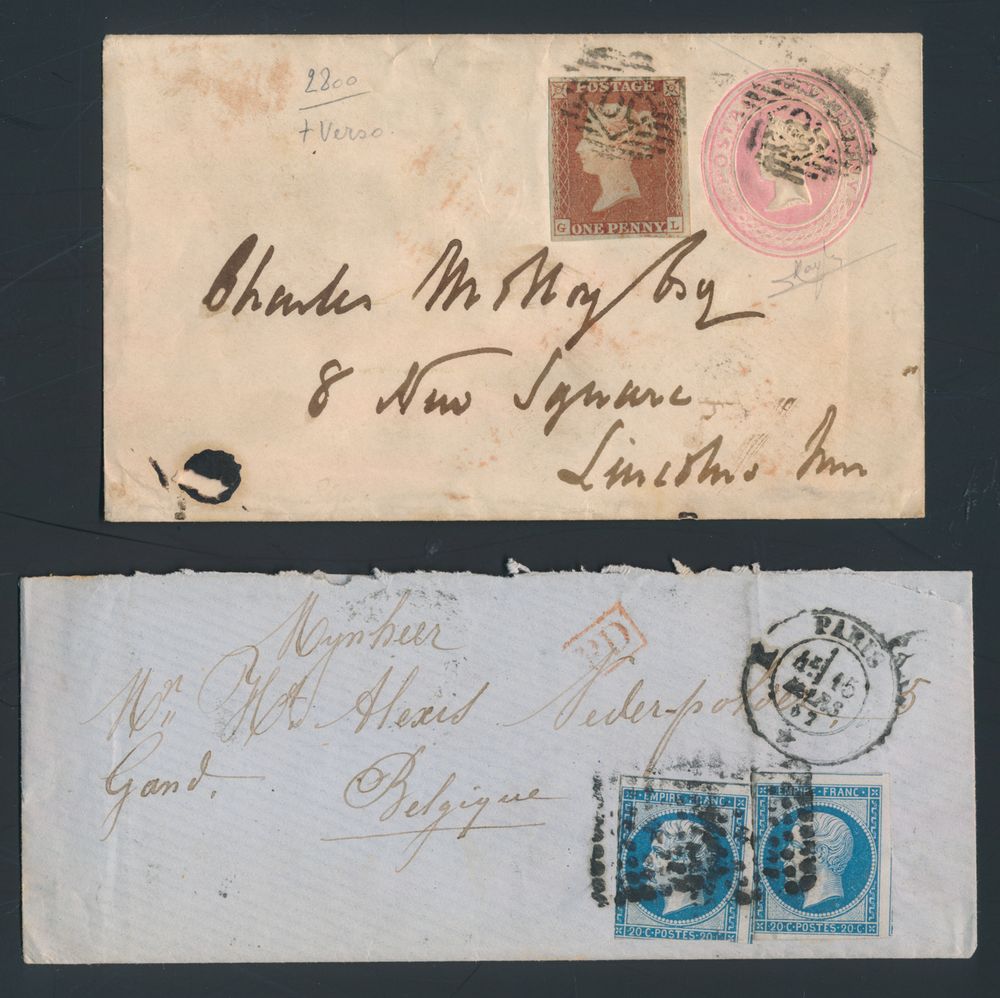 2800
+ Verso.
POSTAGE
G ONE PENNY L
POSTAGE ONE PENNY
Charles Molloy Esq
8 New Square
Lincolns Inn
Mynheer
PD
PARIS
15
MARS
Mr Hd Alexis Nederpolder, 5
Gand.
Belgique
EMPIRE FRANC
20 C·POSTES·20 C
EMPIRE FRANC
20 C·POSTES·20 C